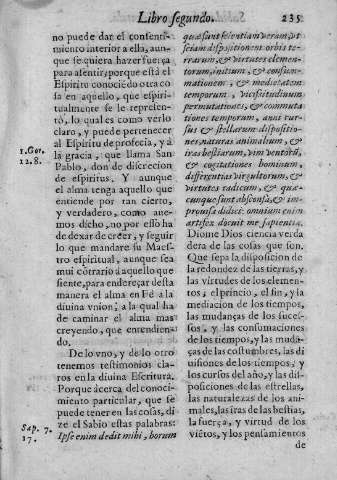 Libro segundo. 235
no puede dar el consenti-
miento interior a ella, aun-
que se quiera hazer fuerça
para assentir; porque està el
Espiritu conociendo otra co
sa en aquello, que espiri-
tualmente se le represen-
tò, lo qual es como verlo
claro, y puede pertenecer
al Espiritu de profecia, y à
la gracia, que llama San
Pablo, don de discrecion
de espiritus. Y aunque
el alma tenga aquello que
entiende por tan cierto,
y verdadero, como aue-
mos dicho, no por esso ha
de dexar de creer, y seguir
lo que mandare su Maes-
tro espiritual, aunque sea
mui cõtrario à aquello que
siente, para endereçar desta
manera el alma en Fè a la
diuina vnion; a la qual ha
de caminar el alma mas
creyendo, que entendien-
do.
De lo vno, y de lo otro
tenemos testimonios cla-
ros en la diuina Escritura.
Porque acerca del conoci-
miento particular, que se
puede tener en las cosas, di-
ze el Sabio estas palabras:
Ipse enim dedit mihi, horum
1. Cor.
12. 8.
Sap. 7.
17.
quæ sunt scientiam veram, ut
sciam dispositionem orbis ter-
rarum, & virtutes elemen-
torum, initium, & consum-
mationem, & medietatem
temporum, vicissitudinum
permutationes, & commuta
tiones temporum, anni cur-
sus, & stellarum dispositio-
nes, naturas animalium, &
iras bestiarum, vim ventorũ,
& cogitationes hominum,
differentias virgultorum, &
virtutes radicum, & quæ-
cunque sunt absconsa, & im-
provisa didici: omnium enim
artifex docuit me sapientia.
Diome Dios ciencia verda
dera de las cosas que son.
Que sepa la disposicion de
la redondez de las tierras, y
las virtudes de los elemen-
tos; el principio, el fin, y la
mediacion de los tiempos,
las mudanças de los suces-
sos, y las consumaciones
de los tiempos, y las mudã-
ças de las costumbres, las di
uisiones de los tiempos, y
los cursos del año, y las dis-
posiciones de las estrellas,
las naturalezas de los ani-
males, las iras de las bestias,
la fuerça, y virtud de los
viẽtos, y los pensamientos
de